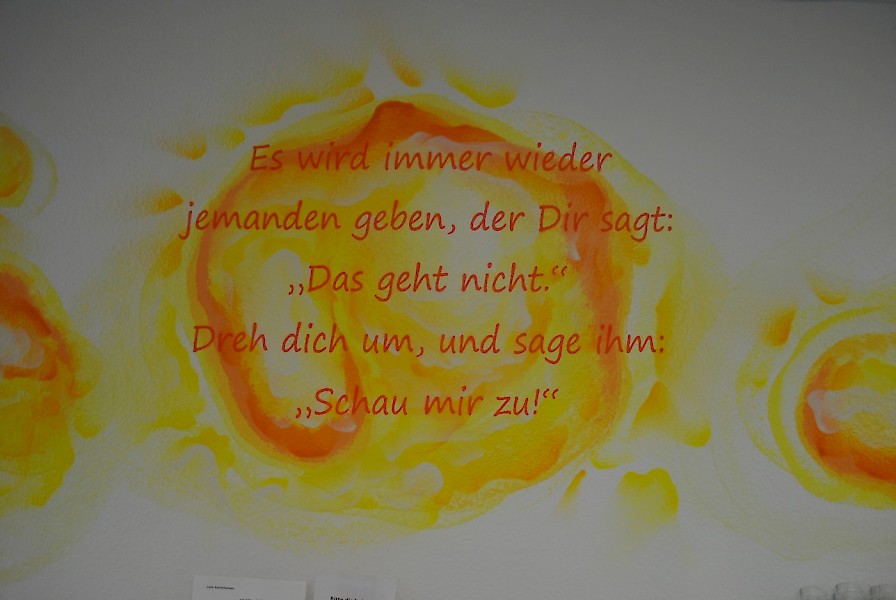 Es wird immer wieder
jemanden geben, der Dir sagt:
„Das geht nicht.“
Dreh dich um, und sage ihm:
„Schau mir zu!“